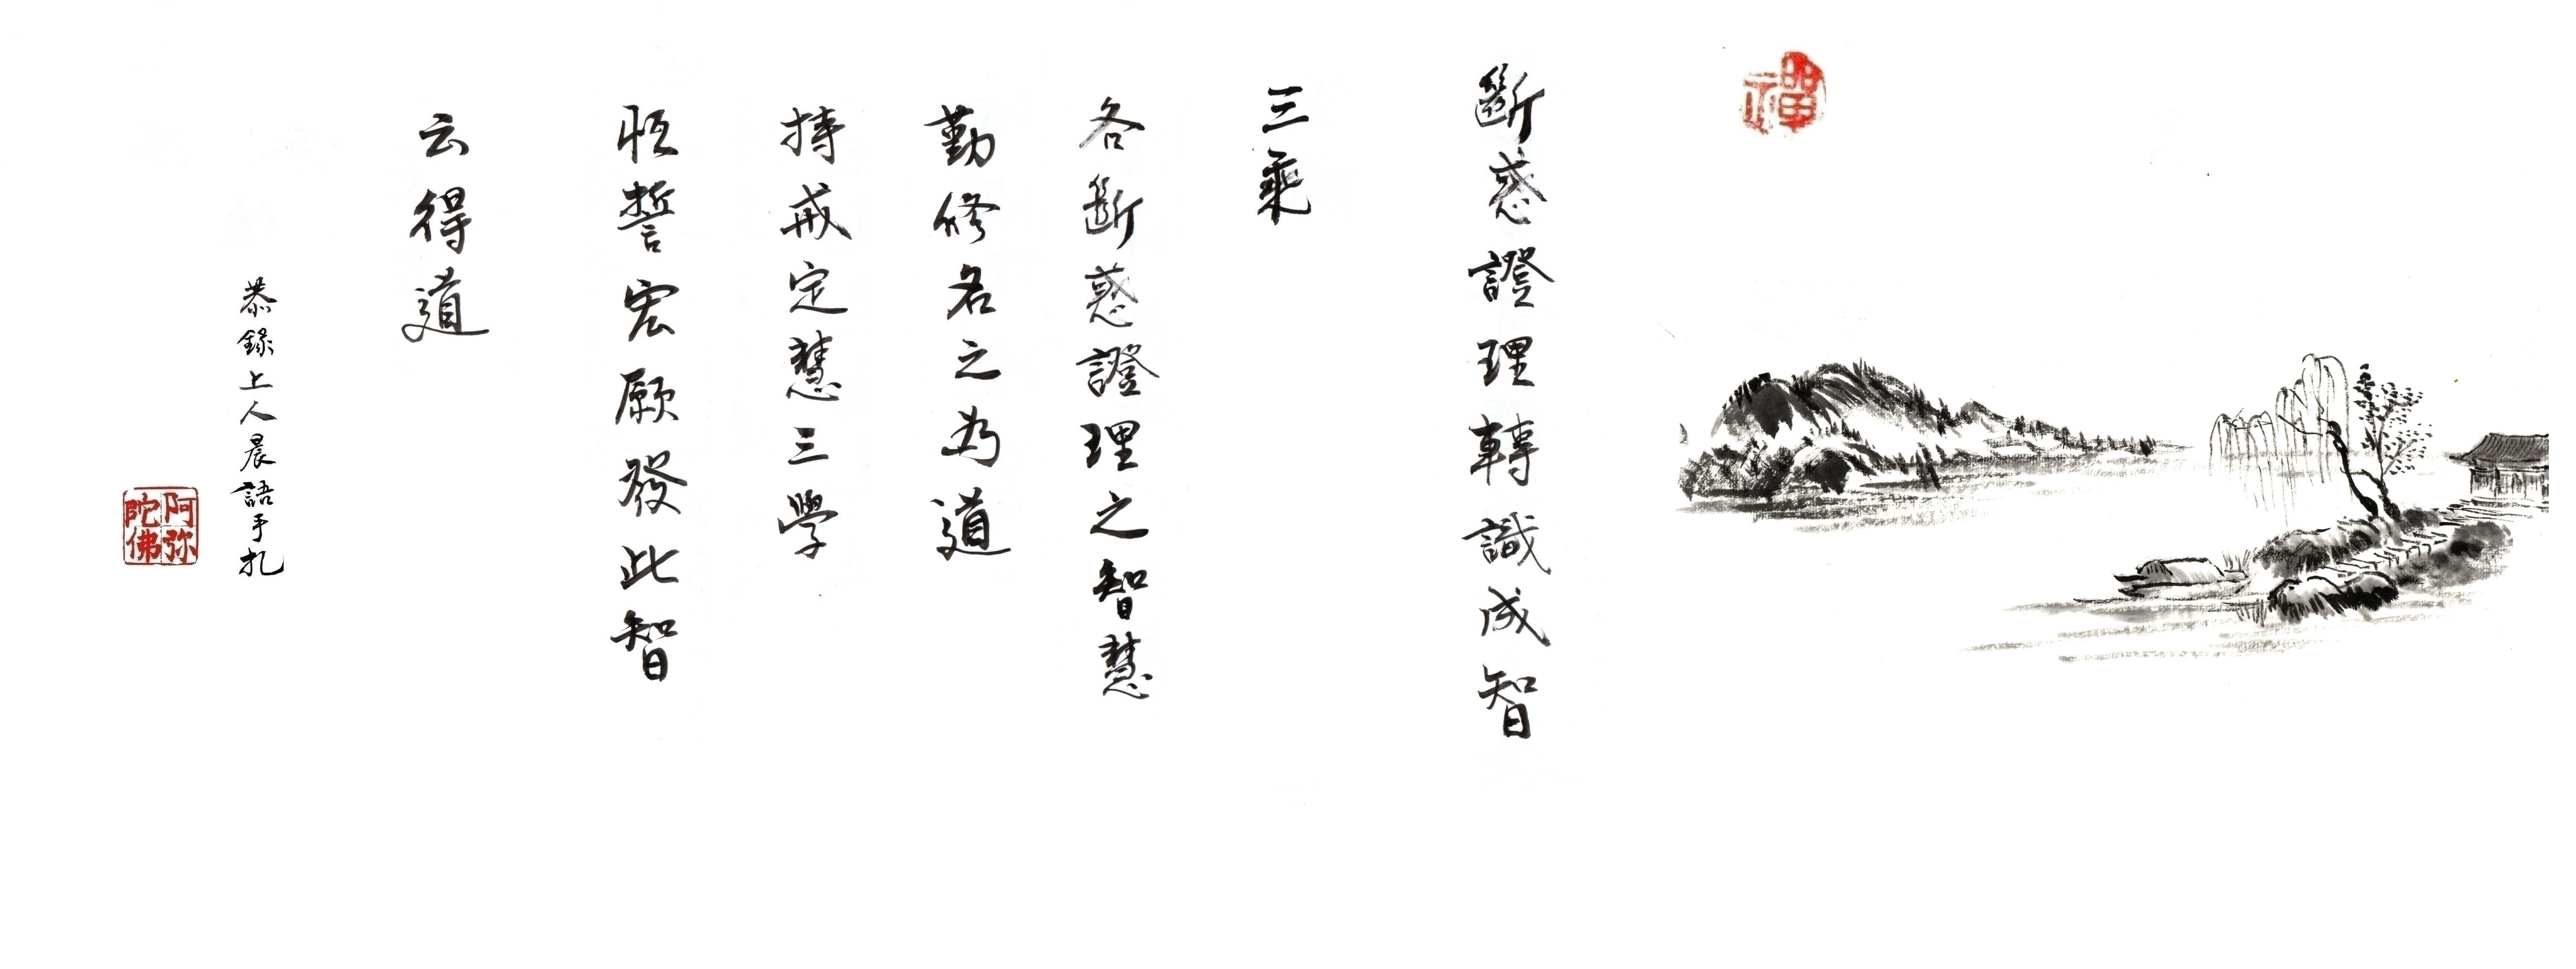 禪
斷惑證理轉識成智
三乘
各斷惑證理之智慧
勤修名之為道
持戒定慧三學
恆誓宏願發此智
云得道
恭錄上人晨語手札
阿弥
陀佛